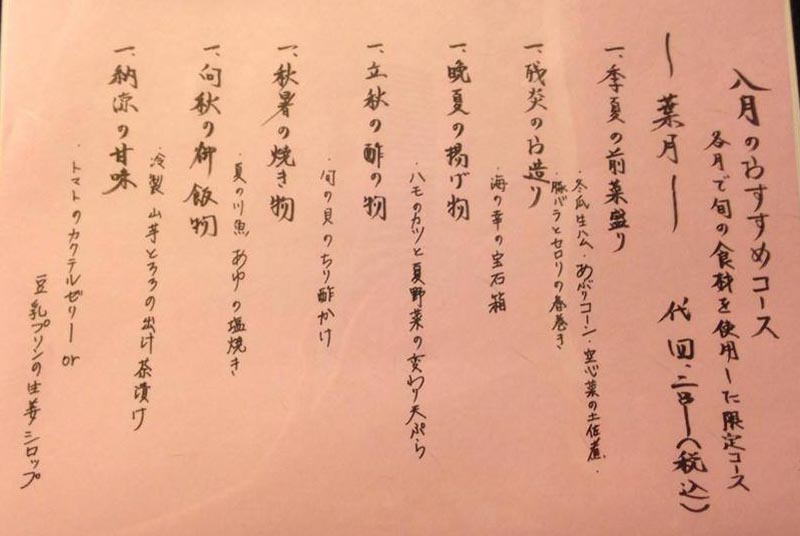 八月のおすすめコース
各月で旬の食材を使用した限定コース
〜葉月〜 代 四、二〇〇(税込)
一、季夏の前菜盛り
・冬瓜生ハム・あぶりコーン・空心菜の土佐煮・
豚バラとセロリの春巻き
一、残炎のお造り
・海の幸の宝石箱
一、晩夏の揚げ物
・ハモのカツと夏野菜の変わり天ぷら
一、立秋の酢の物
・旬の貝のちり酢かけ
一、秋暑の焼き物
・夏の川魚あゆの塩焼き
一、向秋の御飯物
・冷製 山芋とろろの出汁茶漬け
一、納涼の甘味
・トマトのカクテルゼリー or
豆乳プリンの生姜シロップ